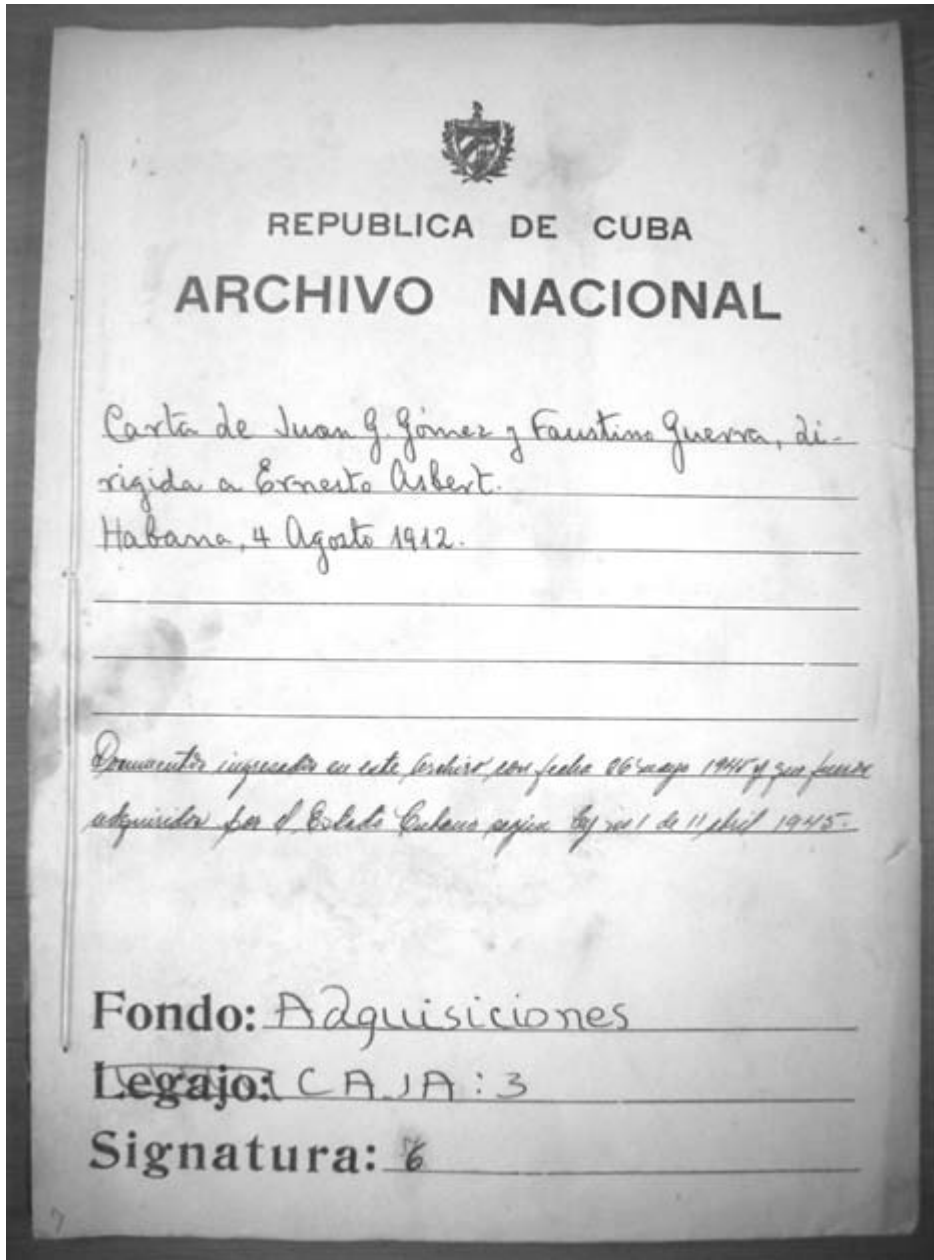 REPUBLICA DE CUBA
ARCHIVO NACIONAL
Carta de Juan G. Gómez y Faustino Guerra, di-
rigida a Ernesto Asbert.
Habana, 4 Agosto 1912.
Documentos ingresados en este Archivo con fecha 26 mayo 1945 y que fueron
adquiridos por el Estado Cubano según ley 1 de 11 abril 1945.
Fondo: Adquisiciones
Legajo: CAJA: 3
Signatura: 6
7